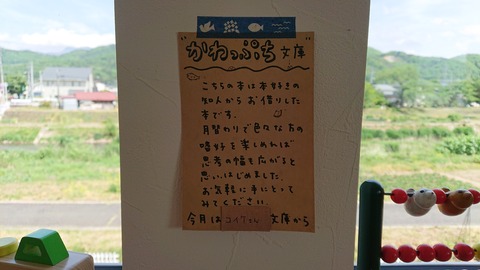 "かわっぷち文庫"
こちらの本は本好きの
知人からお借りした
本です。
月替わりで色々な方の
嗜好を楽しめれば
思考の幅も広がると
思いはじめました。
お気軽に手にとって
みてください。
今月は 文庫から